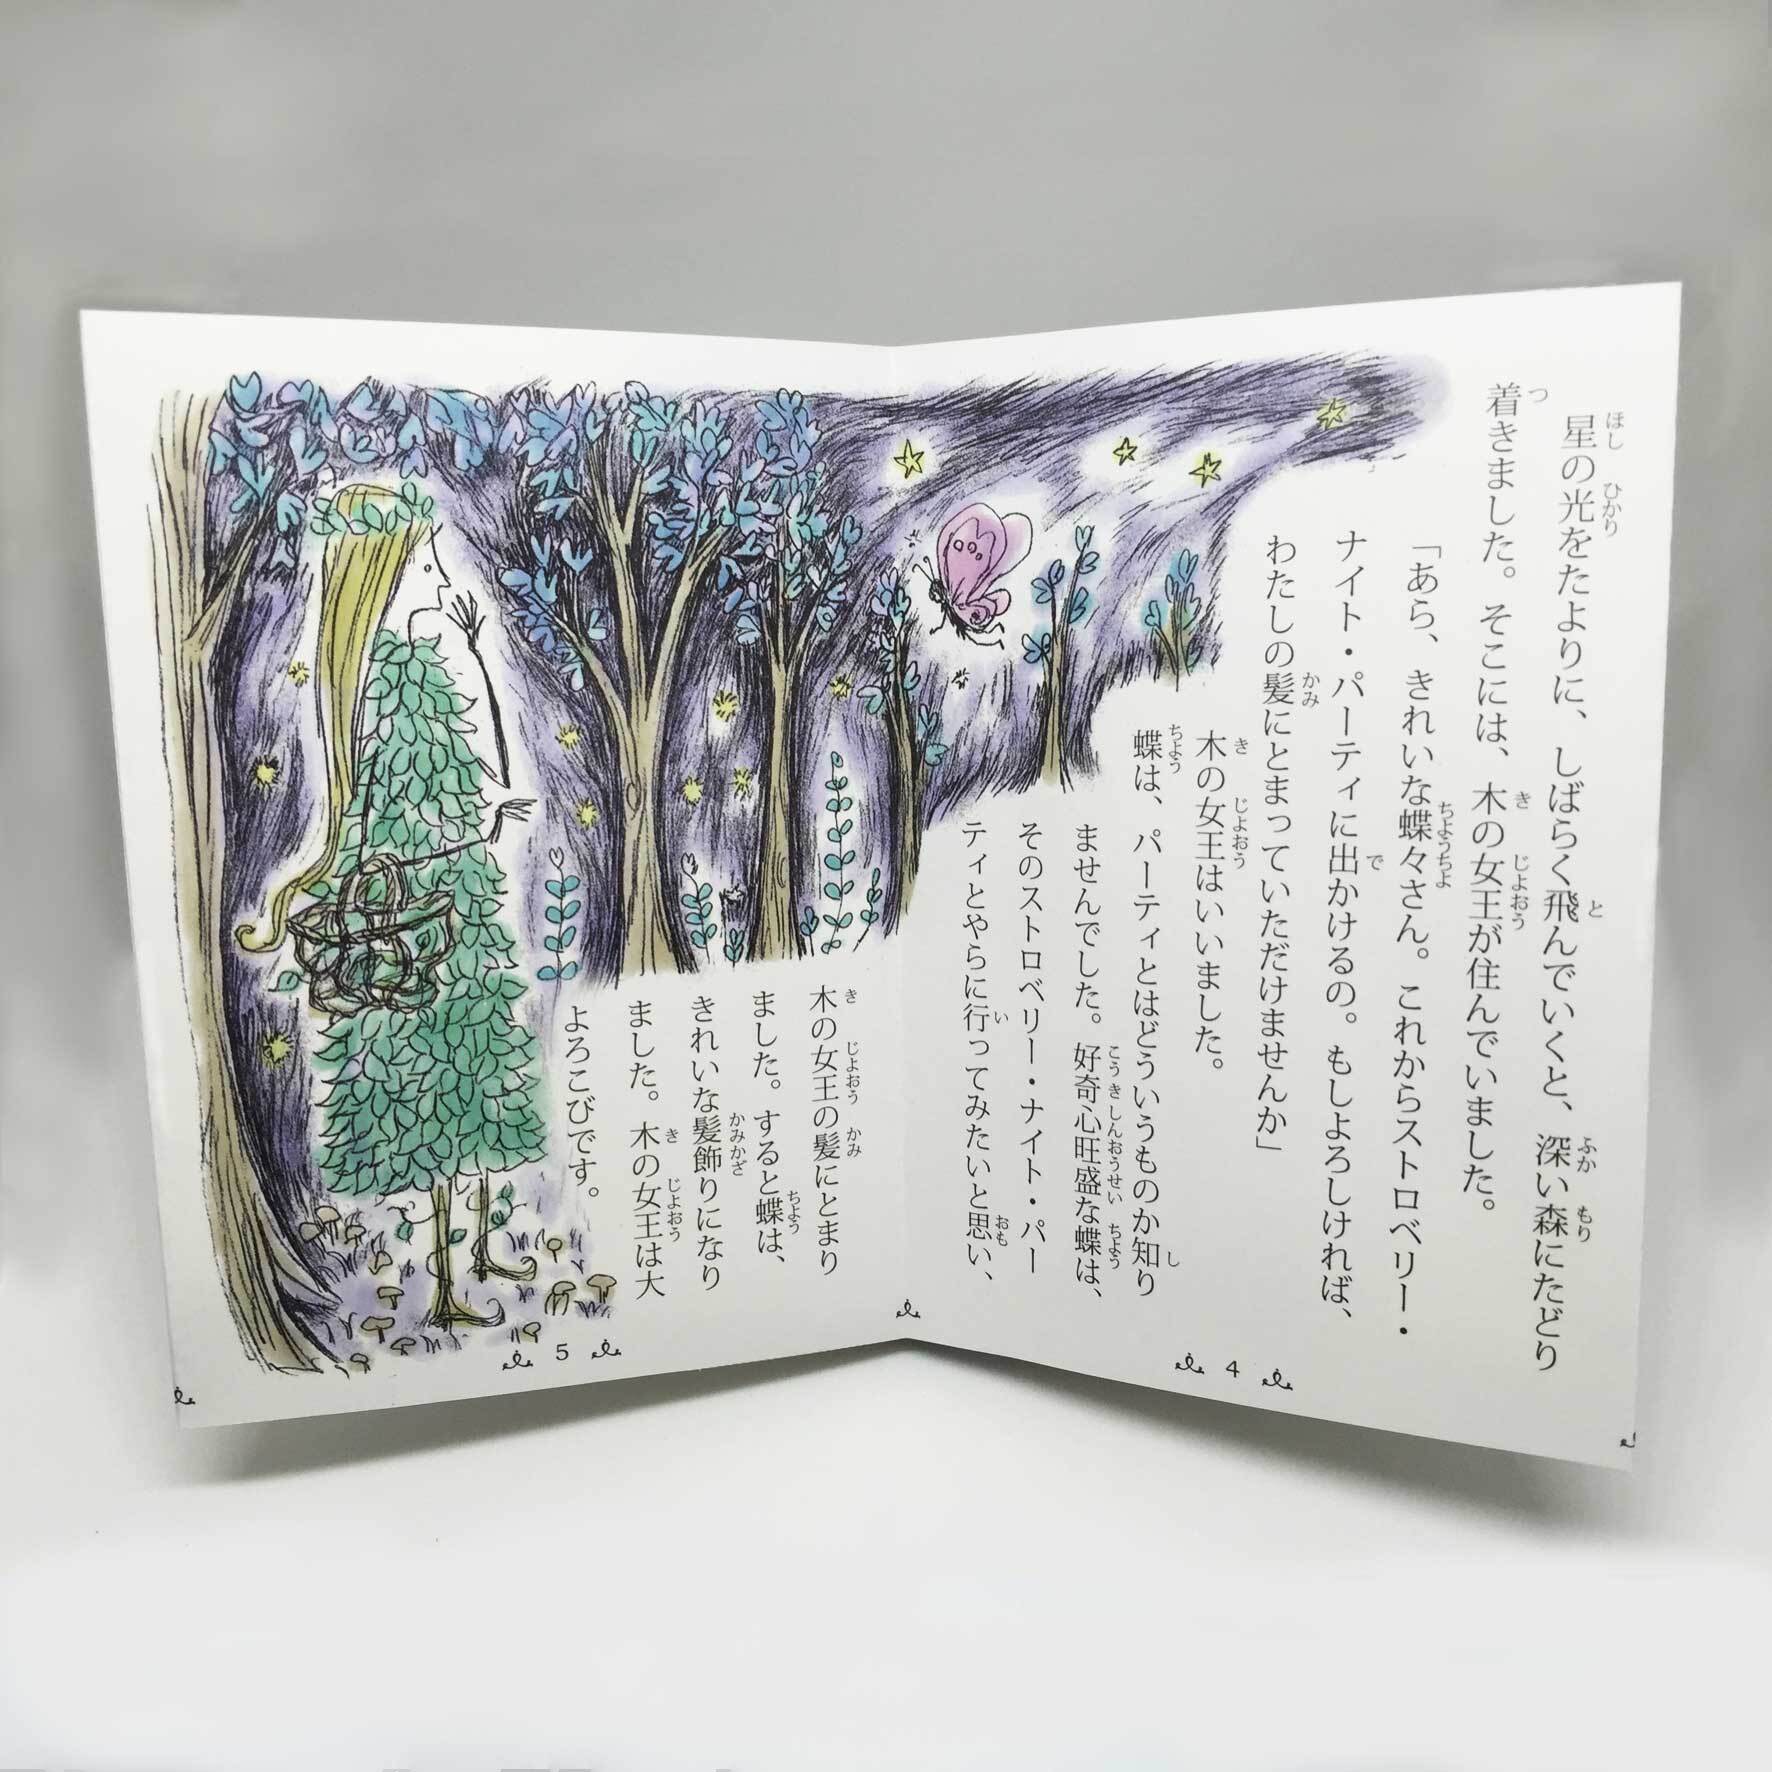 星の光をたよりに、しばらく飛んでいくと、深い森にたどり
着きました。そこには、木の女王が住んでいました。
「あら、きれいな蝶々さん。これからストロベリー・
ナイト・パーティに出かけるの。もしよろしければ、
わたしの髪にとまっていただけませんか」
木の女王はいいました。
蝶は、パーティとはどういうものか知り
ませんでした。好奇心旺盛な蝶は、
そのストロベリー・ナイト・パー
ティとやらに行ってみたいと思い、
4
木の女王の髪にとまり
ました。すると蝶は、
きれいな髪飾りになり
ました。木の女王は大
よろこびです。
5